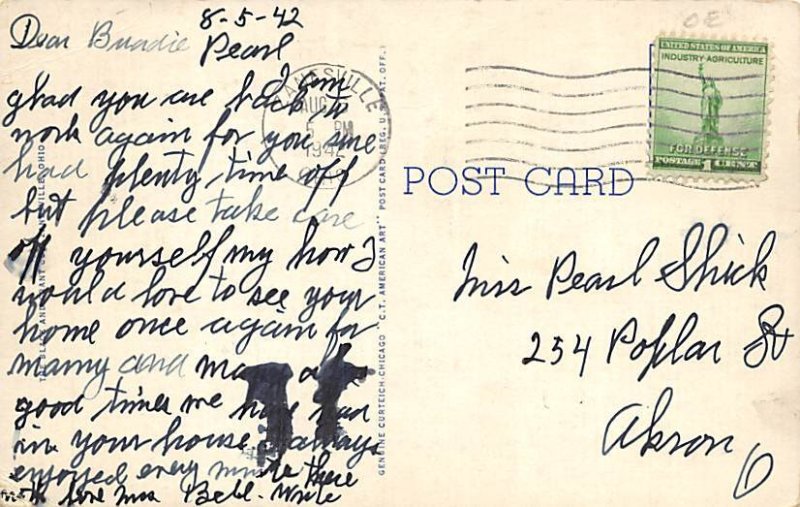 8-5-42
Dear Buadie Pearl
I am
glad you are back to
work again for you sure
had plenty time off
but please take care
off yourself my how I
would love to see your
home once again for
many and many a
good times we have had
in your house. I always
enjoyed every minute there
with love Mrs Bell. Write
ZANESVILLE
AUG
5 PM
1942
GENUINE CURTEICH-CHICAGO "C.T. AMERICAN ART" POST CARD (REG. U.S. PAT. OFF.)
POST CARD
UNITED STATES OF AMERICA
INDUSTRY·AGRICULTURE
FOR DEFENSE
POSTAGE 1 CENT
Miss Pearl Shick
254 Poplar St
Akron
O